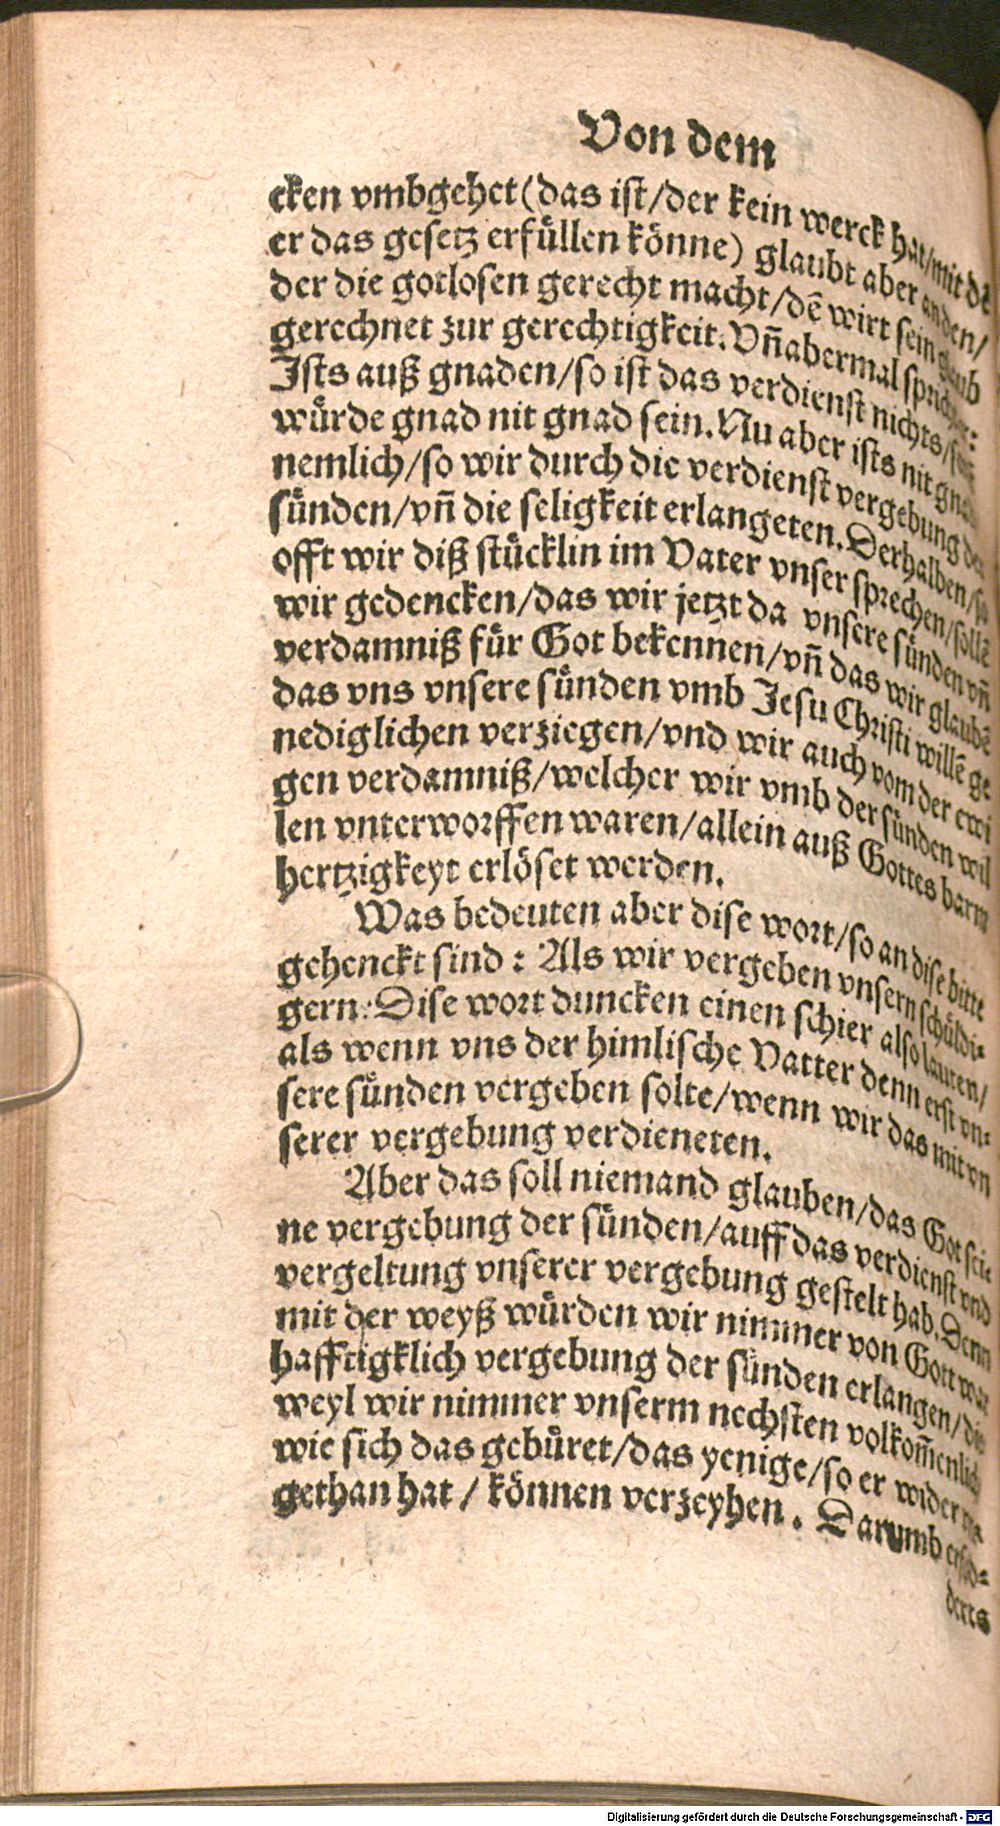 Von dem
cken vmbgehet (das ist/der kein werck hat/mit dē
er das gesetz erfüllen könne) glaubt aber an den/
der die gotlosen gerecht macht/dē wirt sein glaub
gerechnet zur gerechtigkeit. Vñ abermal spricht er:
Ists auß gnaden/so ist das verdienst nichts/
würde gnad nit gnad sein. Nu aber ists nit gnad
nemlich/so wir durch die verdienst vergebung der
sünden/vñ die seligkeit erlangeten. Derhalben/so
offt wir diß stücklin im Vater vnser sprechen/sollē
wir gedencken/das wir jetzt da vnsere sünden vñ
verdamniß für Got bekennen/vñ das wir glaubē
das vns vnsere sünden vmb Jesu Christi willē ge
nediglichen verziegen/vnd wir auch vom der ewi
gen verdamniß/welcher wir vmb der sünden wil
len vnterworffen waren/allein auß Gottes barm
hertzigkeyt erlöset werden.
Was bedeuten aber dise wort/so an dise bitte
gehenckt sind: Als wir vergeben vnsern schüldi-
gern: Dise wort duncken einen schier also lauten/
als wenn vns der himlische Vatter denn erst vn-
sere sünden vergeben solte/wenn wir das mit vn
serer vergebung verdieneten.
Aber das soll niemand glauben/das Got sei
ne vergebung der sünden/auff das verdienst vnd
vergeltung vnserer vergebung gestelt hab. Denn
mit der weyß würden wir nimmer von Gott war
hafftigklich vergebung der sünden erlangen/die
weyl wir nimmer vnserm nechsten volkom̄enlich
wie sich das gebüret/das yenige/so er wider
gethan hat/können verzeyhen. Darumb erfod-
derts